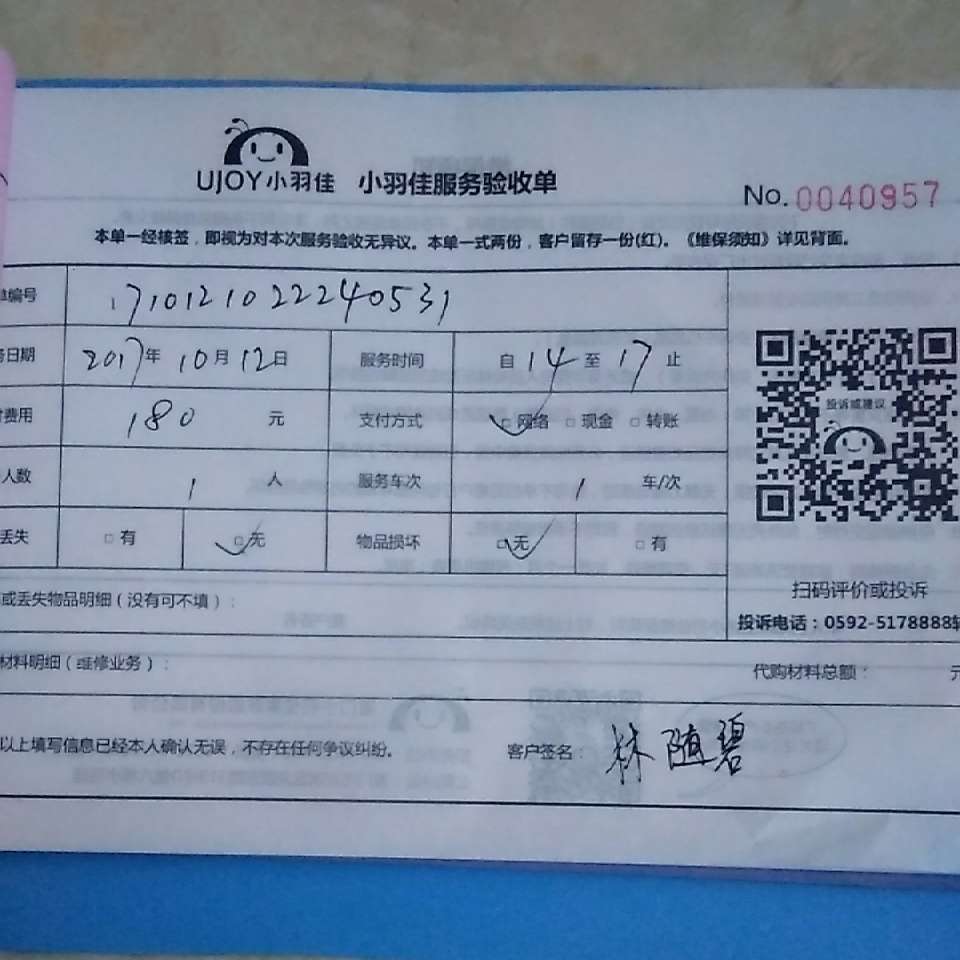 UJOY小羽佳 小羽佳服务验收单
No. 0040957
本单一经核签，即视为对本次服务验收无异议。本单一式两份，客户留存一份(红)。《维保须知》详见背面。
单编号 17101210222240531
务日期 2017年10月12日 服务时间 自14至17止
费用 180 元 支付方式 □网络 □现金 □转账
投诉或建议
人数 1 人 服务车次 1 车/次
丢失 □有 □无 物品损坏 □无 □有
扫码评价或投诉
或丢失物品明细（没有可不填）：
投诉电话：0592-5178888转
材料明细（维修业务）： 代购材料总额： 元
以上填写信息已经本人确认无误，不存在任何争议纠纷。 客户签名：林随碧